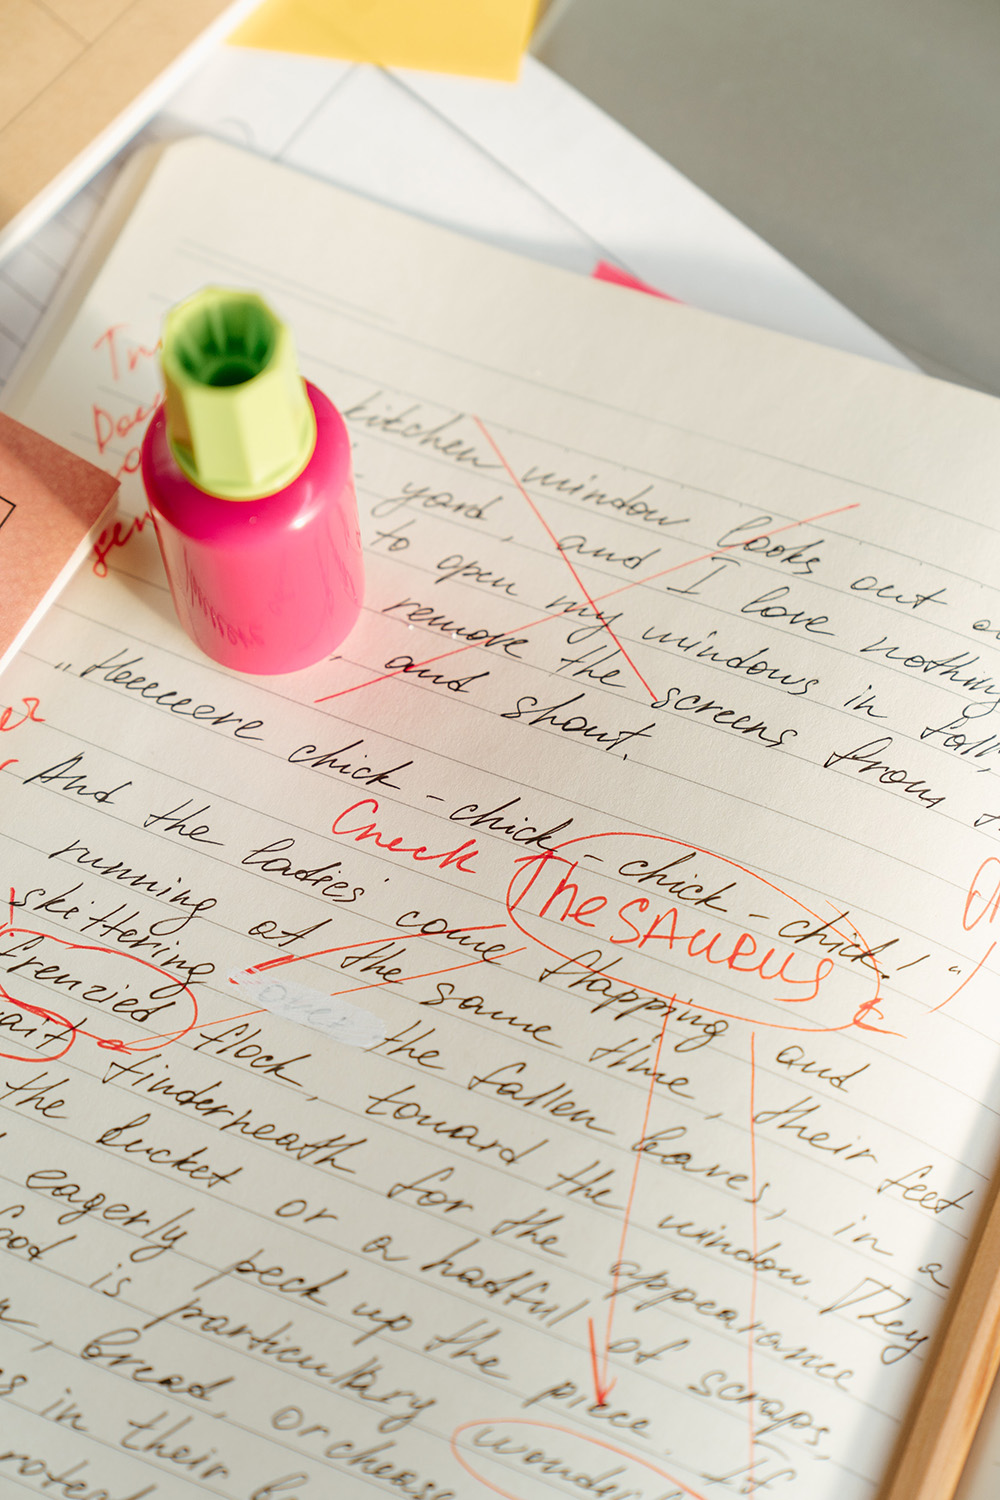 kitchen window looks out
yard, and I love nothing
to open my windows in fall,
remove the screens from
, and shout.
„Heeeeere chick-chick-chick-chick!"
Check
TheSAURUS
And the ladies' come flapping and
running at the same time, their feet
skittering over the fallen leaves, in a
frenzied flock, toward the window. They
wait finderheath for the appearance
the bucket or a hatful of scraps,
eagerly peck up the piece. If
food is particulary wonder
bread, or cheese
in their